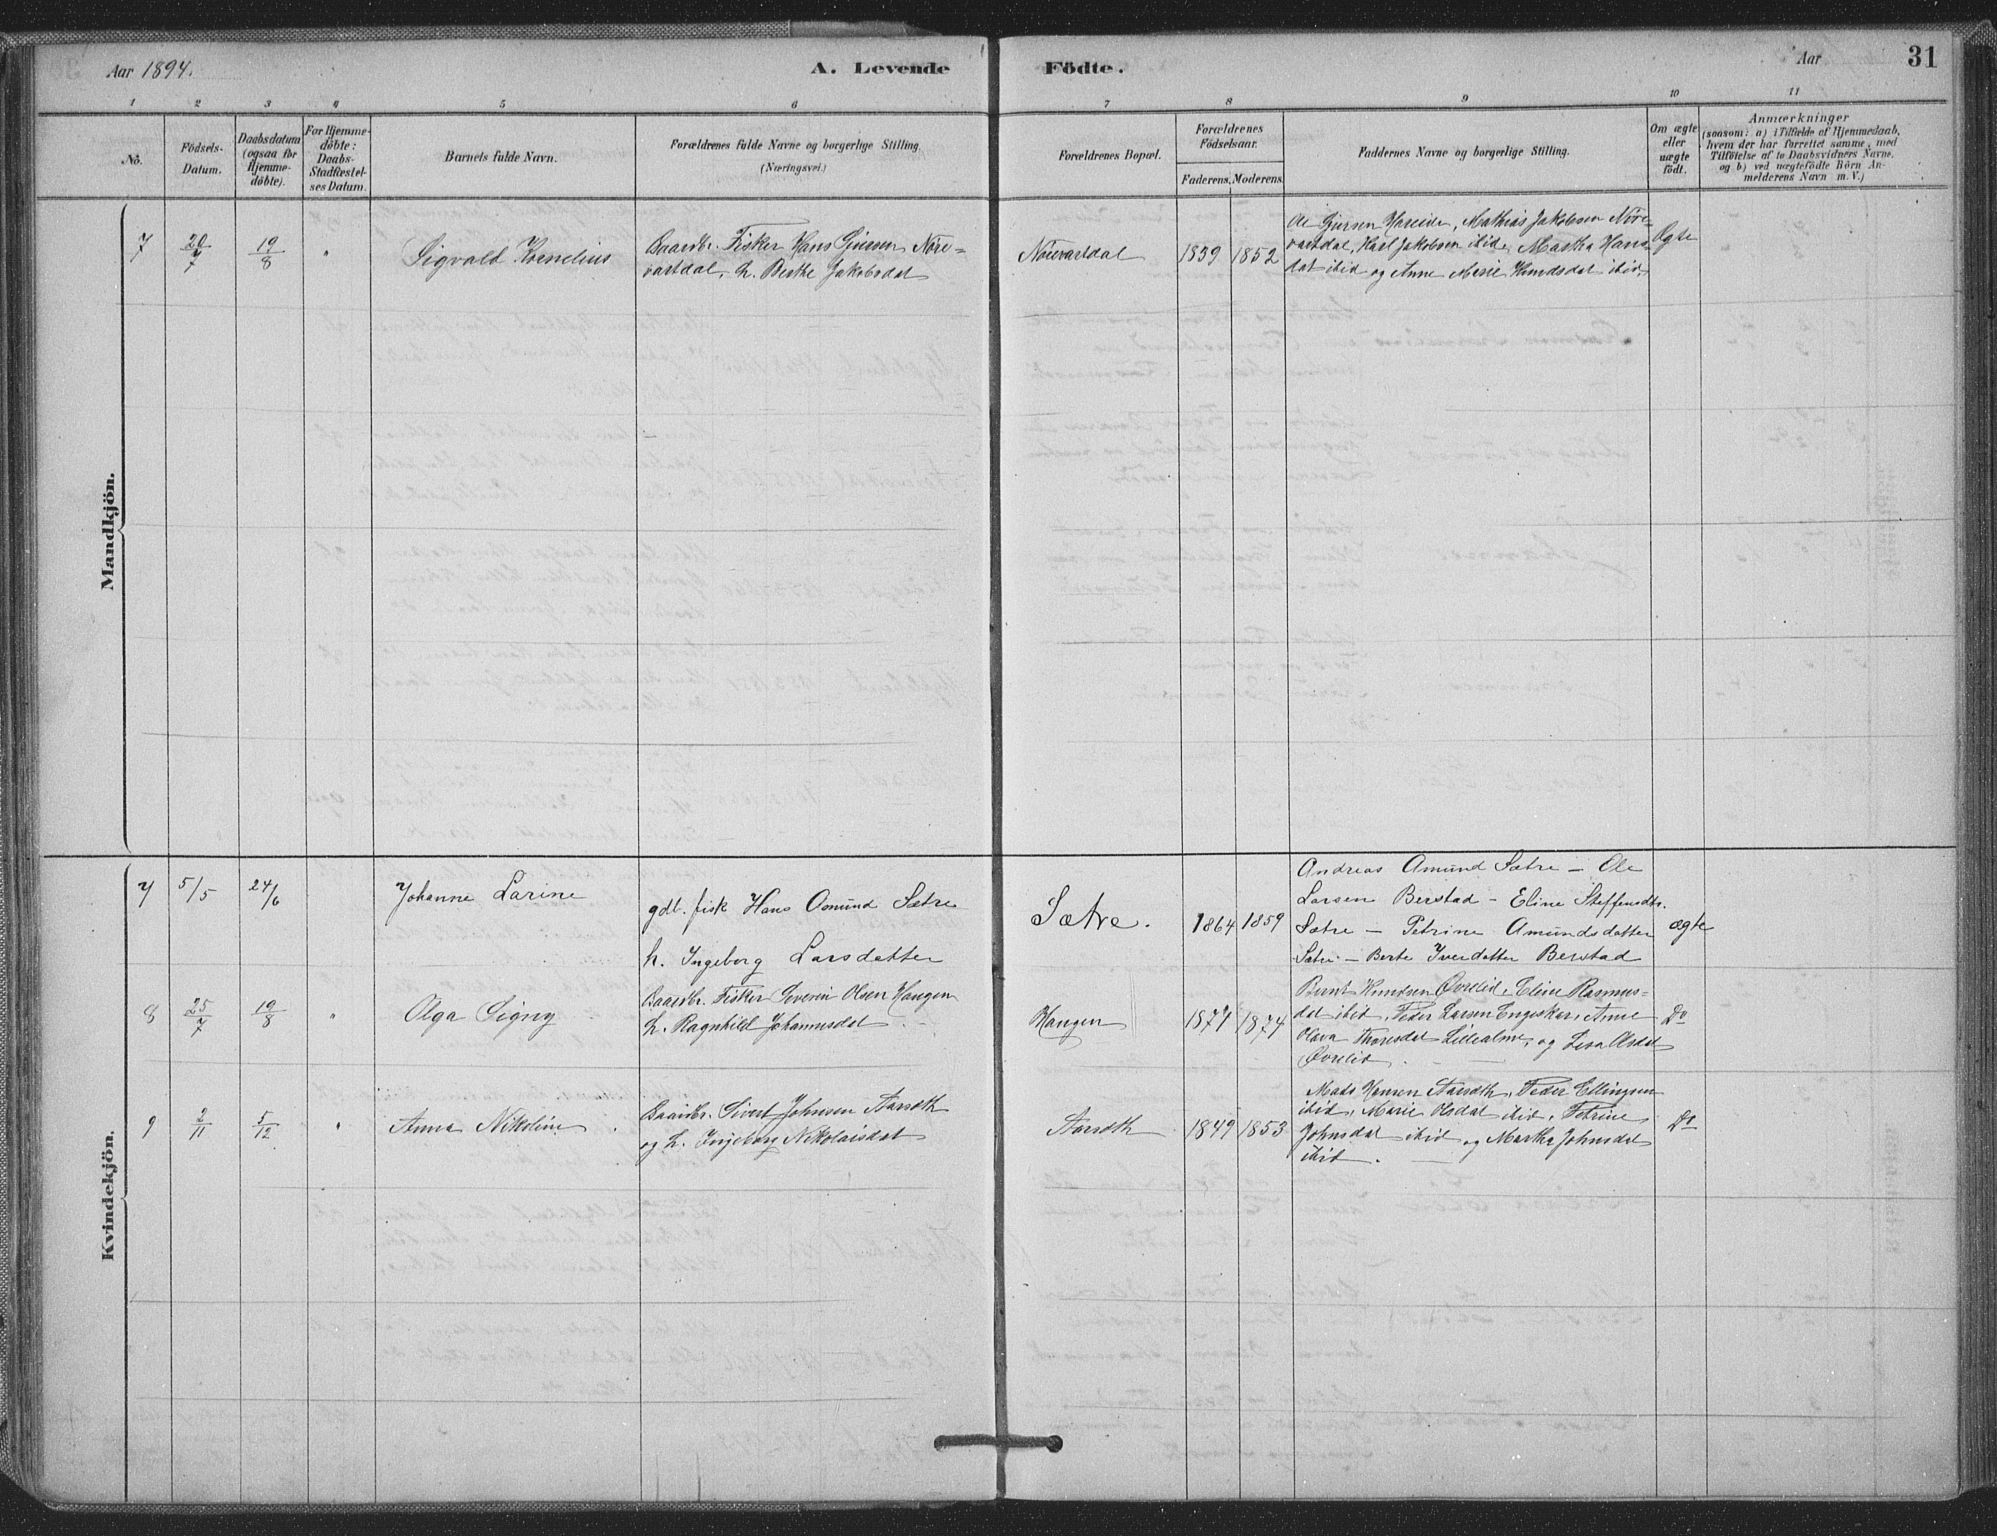 Aar 1894.
A. Levende Födte.
Aar 31
1 2 3 4 5 6 7 8 9 10 11
No.
Födsels-
Datum.
Daabsdatum
(ogsaa for
Hjemme-
döbte).
For Hjemme-
döbte:
Daabs-
Stadfæstel-
ses Datum.
Barnets fulde Navn.
Forældrenes fulde Navne og borgerlige Stilling.
(Næringsvei.)
Forældrenes Bopæl.
Forældrenes
Födselsaar.
Faderens. Moderens.
Faddernes Navne og borgerlige Stilling.
Om ægte
eller
uægte
födt.
Anmærkninger
(saasom: a) i Tilfælde af Hjemmedaab,
hvem der har forrettet samme, med
Tilföielse af to Daabsvidners Navne,
og b) ved uægtefödte Börn An-
melderens Navn m. V.)
Mandkjön.
7 20/7 19/8 " Sigvald Kornelius
Gaardbr. Fisker Hans Siversen Nore-
vartdal, h. Berthe Jakobsdat
Norevartdal 1839 1852
Ole Hareide, Mathias Jakobsen Nore-
vartdal, Karl Jakobsen ibid, Martha Hans-
dat ibid og Anne Marie Knudsdat ibid.
Ægte
Kvindekjön.
7 5/5 24/6 Johanne Larine
gdb. fisk Hans Osmund Sætre
h. Ingeborg Larsdatter
Sætre. 1864 1859
Andreas Amund Sætre – Ole
Larsen Berstad – Eline Steffensdtr.
Sætre – Petrine Amundsdatter
Sætre – Berte Iverdatter Berstad
ægte
8 25/7 19/8 " Olga Signy
Gaardbr. Fisker Severin Olsen Haugen
h. Ragnhild Johannesdat
Haugen 1871 1874
Bernt Knudsen Øvrelid, Eline Rasmus-
dat ibid, Peder Larsen Engeskar, Anne
Olava Thoresdat Lillealme, og Olsdat
Øvrelid
Do
9 2/11 5/12 " Anna Nikoline
Gaardbr. Sivert Johnsen Aarseth
og h. Ingeborg Nikolaisdat
Aarseth 1849 1853
Mads Hansen Aarseth, Peder Ellingsen
ibid, Marie Olsdat ibid, Petrine
Johnsdat ibid og Martha Johnsdat
ibid.
Do